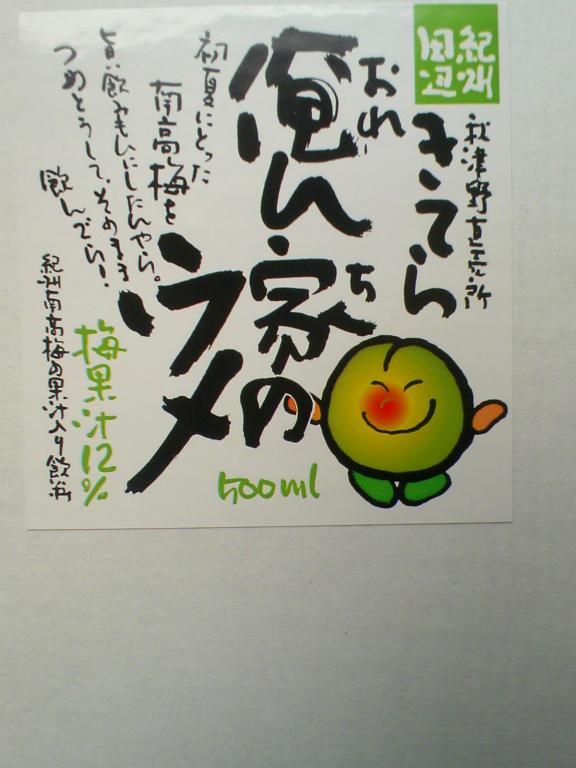 紀州
田辺
秋津野直売所
きてら
おれ
俺ん家の
ち
ウメ
初夏にとった
南高梅を
旨い飲みもんにしたんやら。
つめとうして、そのまま
飲んでら!
梅果汁12%
紀州南高梅の果汁入り飲料
500ml